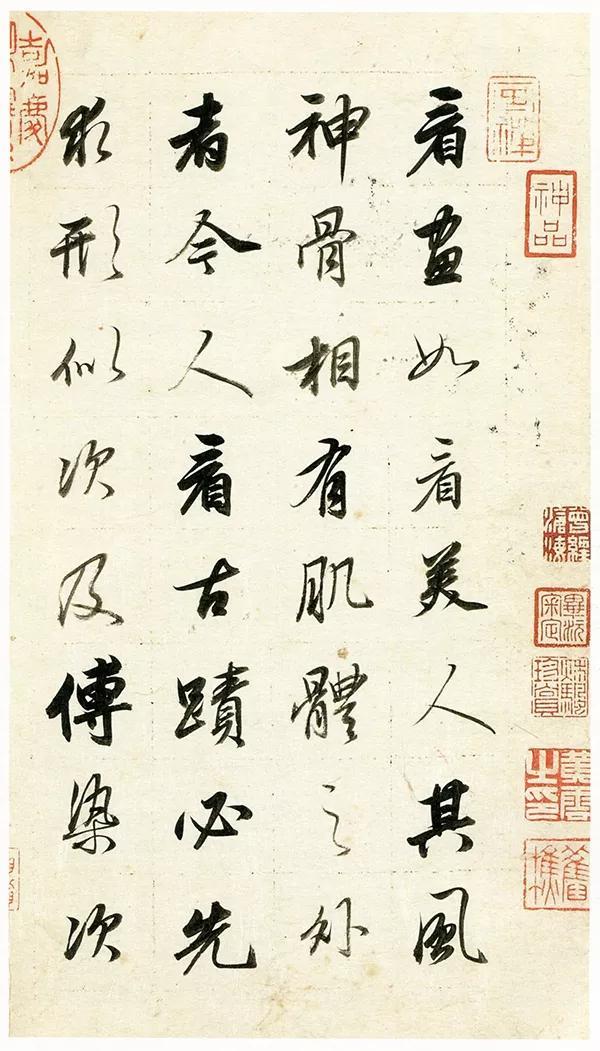 看畫如看美人其風
神骨相有肌體之外
者今人看古蹟必先
求形似次及傅染次
神品
嘉慶